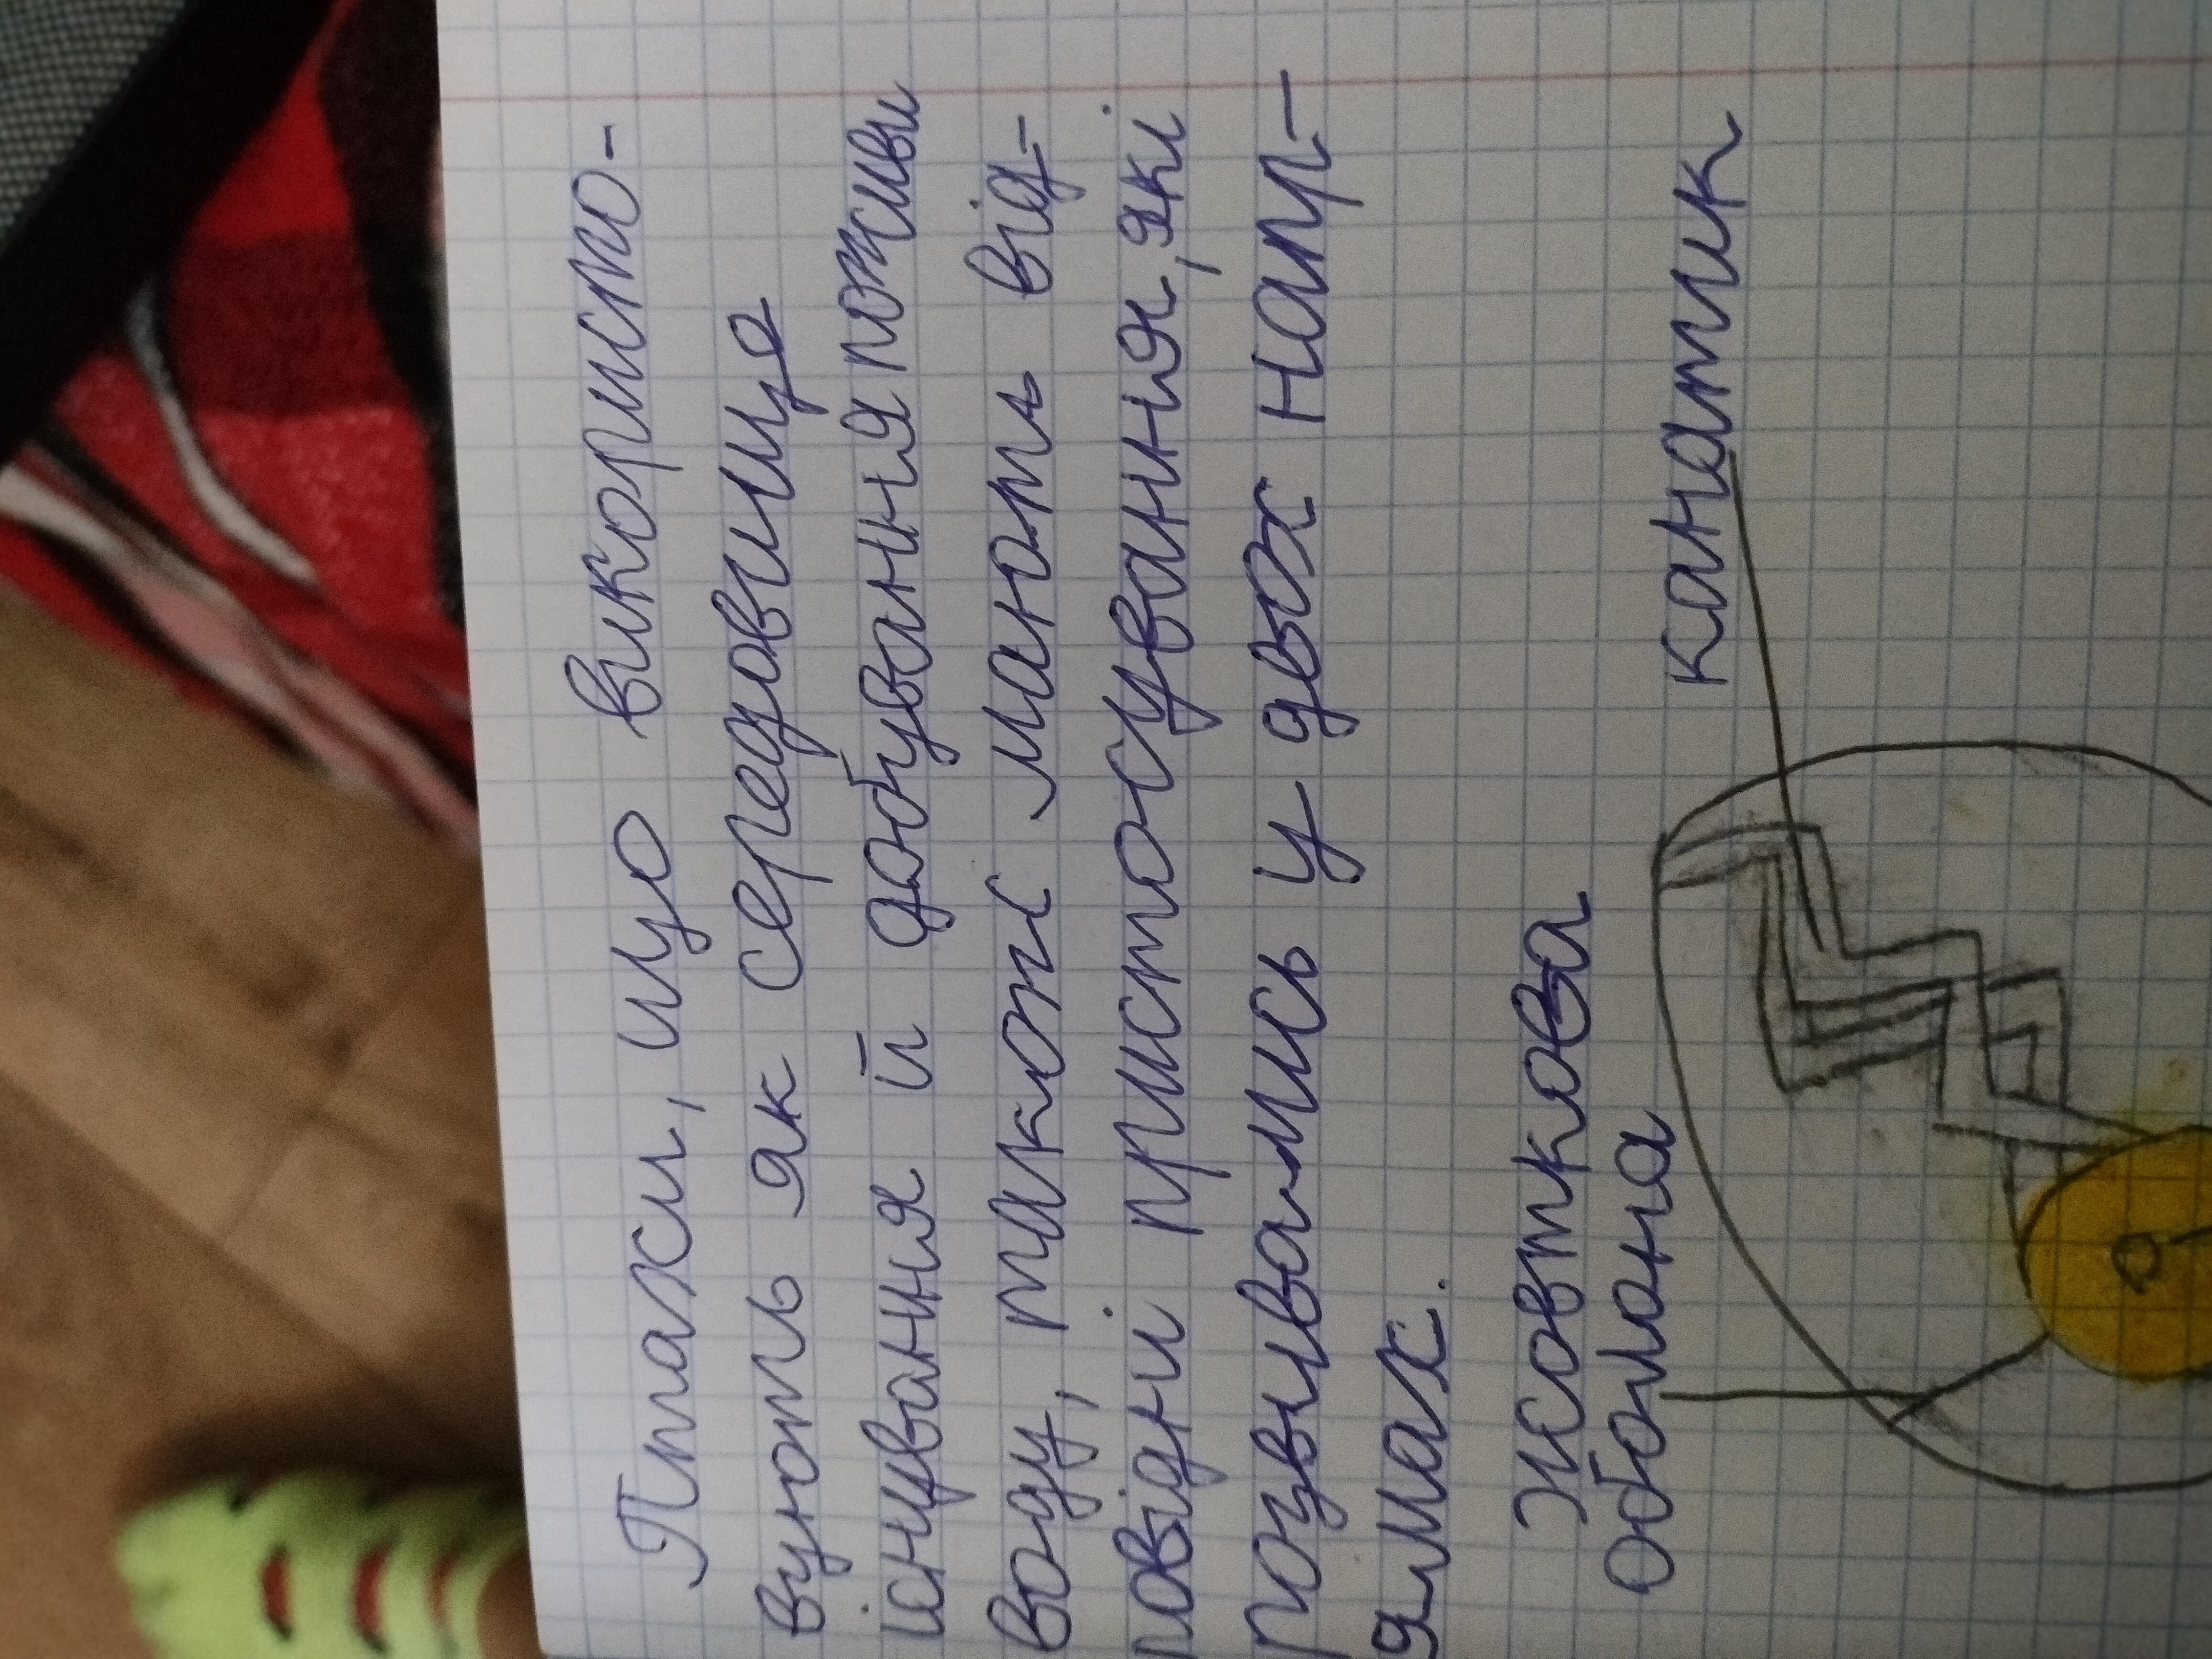 Птахи, що використо-
вують як середовище
існування й добування поживи
воду, також мають від-
повідні пристосування, які
розвивались у двох нап-
рямах.
Жовткова
оболона
канатик